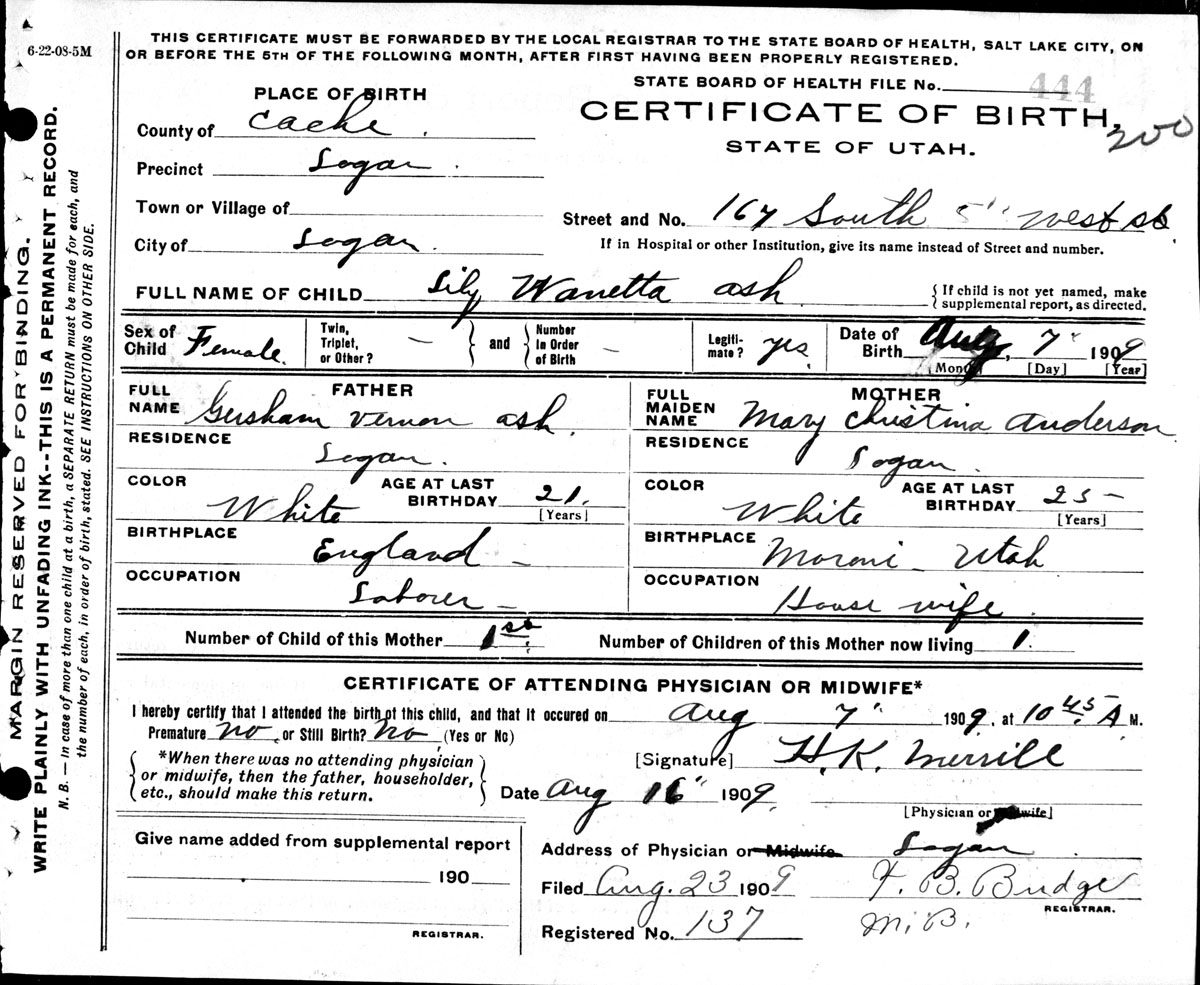 6-22-08-5M
THIS CERTIFICATE MUST BE FORWARDED BY THE LOCAL REGISTRAR TO THE STATE BOARD OF HEALTH, SALT LAKE CITY, ON
OR BEFORE THE 5TH OF THE FOLLOWING MONTH, AFTER FIRST HAVING BEEN PROPERLY REGISTERED.
STATE BOARD OF HEALTH FILE No. 444
PLACE OF BIRTH
CERTIFICATE OF BIRTH. 200
STATE OF UTAH.
County of Cache.
Precinct Logan.
Town or Village of
Street and No. 167 South 5" West St
City of Logan.
If in Hospital or other Institution, give its name instead of Street and number.
FULL NAME OF CHILD Lily Wanetta Ash
{ If child is not yet named, make
supplemental report, as directed.
Sex of Child Female.
Twin, Triplet, or Other? —
and
Number in Order of Birth —
Legitimate? yes
Date of Birth Aug, 7" 1909
[Month] [Day] [Year]
FATHER
FULL NAME Gersham Vernon Ash.
RESIDENCE Logan.
COLOR White
AGE AT LAST BIRTHDAY 21.
[Years]
BIRTHPLACE England —
OCCUPATION Laborer —
MOTHER
FULL MAIDEN NAME Mary Christina Anderson
RESIDENCE Logan.
COLOR White
AGE AT LAST BIRTHDAY 25 —
[Years]
BIRTHPLACE Moroni - Utah
OCCUPATION House wife.
Number of Child of this Mother 1st.
Number of Children of this Mother now living 1.
CERTIFICATE OF ATTENDING PHYSICIAN OR MIDWIFE*
I hereby certify that I attended the birth of this child, and that it occured on Aug 7" 1909, at 10 45 A M.
Premature No, or Still Birth? No, (Yes or No)
*When there was no attending physician
or midwife, then the father, householder,
etc., should make this return.
[Signature] H. K. Merrill
Date Aug 16" 1909.
[Physician or Midwife]
Give name added from supplemental report
190
REGISTRAR.
Address of Physician or Midwife Logan.
Filed Aug. 23 1909 F. B. Budge
REGISTRAR.
Registered No. 137 M. B.
MARGIN RESERVED FOR BINDING.
WRITE PLAINLY WITH UNFADING INK--THIS IS A PERMANENT RECORD.
N. B. — In case of more than one child at a birth, a SEPARATE RETURN must be made for each, and
the number of each, in order of birth, stated. SEE INSTRUCTIONS ON OTHER SIDE.